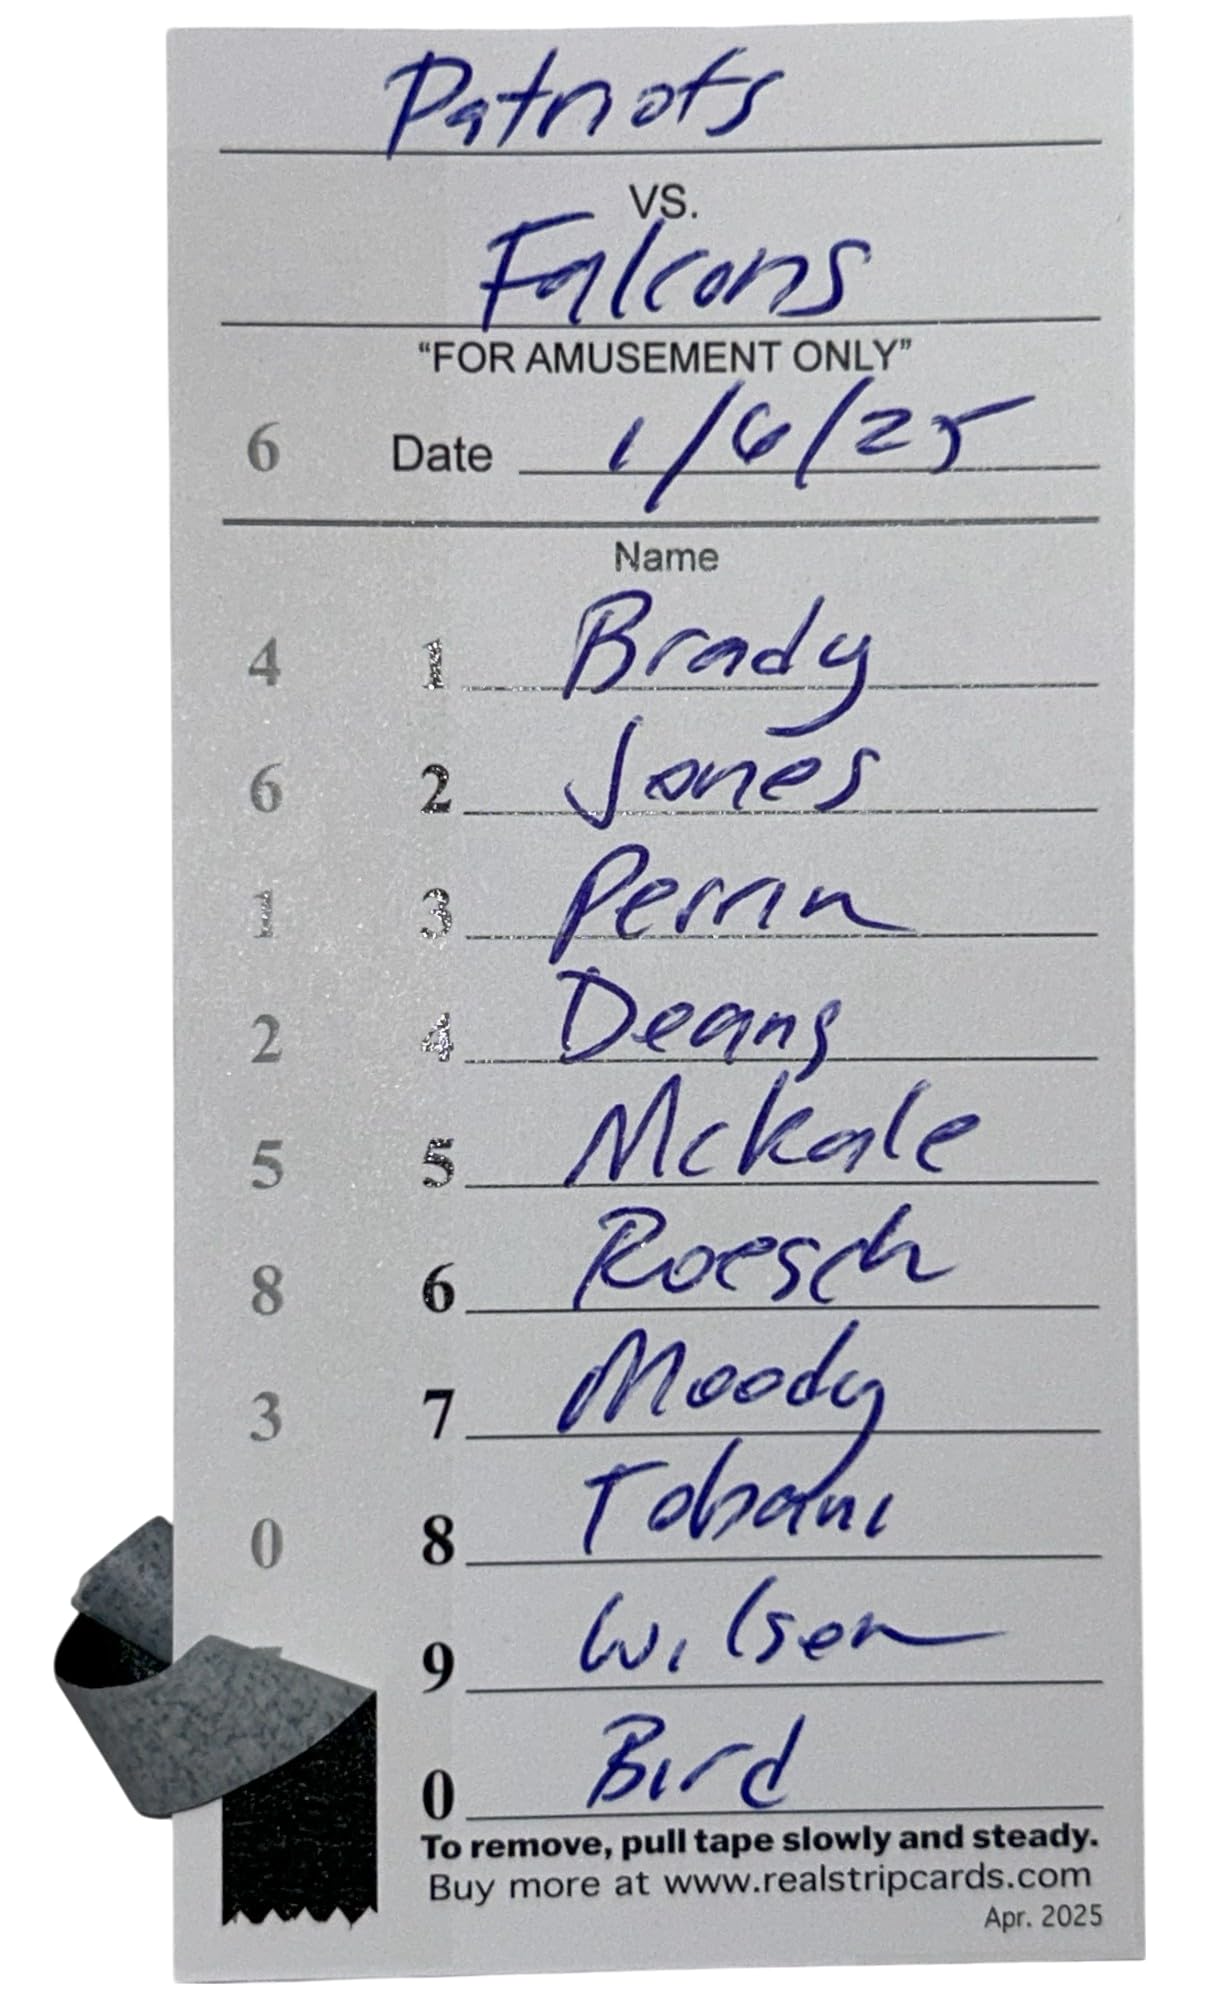 Patriots
VS.
Falcons
“FOR AMUSEMENT ONLY”
6 Date 1/6/25
Name
4 1 Brady
6 2 Jones
1 3 Perrin
2 4 Deans
5 5 McKale
8 6 Roesch
3 7 Moody
0 8 Tobani
9 Wilson
0 Bird
To remove, pull tape slowly and steady.
Buy more at www.realstripcards.com
Apr. 2025